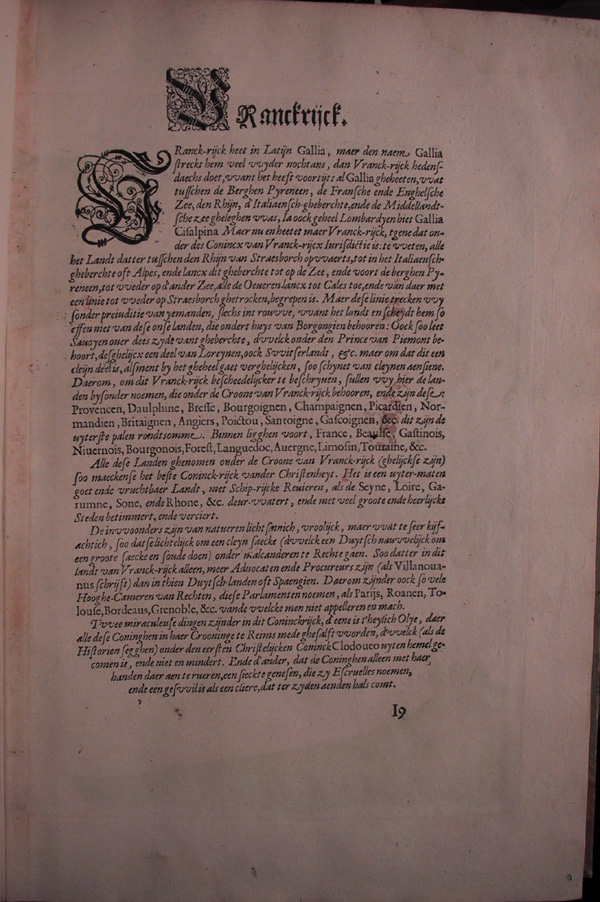 VRanckrijck.
VRanck-rijck heet in Latijn Gallia, maer den naem Gallia
strecks hem veel wyder nochtans, dan Vranck-rijck hedens-
daechs doet, want het heeft voortijts al Gallia gheheeten, wat
tusschen de Berghen Pyreneen, de Fransche ende Enghelsche
Zee, den Rhijn, d'Italiaensch-gheberchte, ende de Middellandt-
sche zee gheleghen was, Ia oock geheel Lombardyen hiet Gallia
Cisalpina. Maer nu en heetet maer Vranck-rijck, tgene dat on-
der des Conincx van Vranck-rijcx Iurisdictie is: te weten, alle
het Landt datter tusschen den Rhijn van Straesborch opwaerts, tot in het Italiaensch-
gheberchte oft Alpes, ende lancx dit gheberchte tot op de Zee, ende voort de berghen Py-
reneen, tot weder op d'ander Zee, alle de Oeueren-lancx tot Cales toe, ende van daer met
een linie tot weder op Straesborch ghetrocken, begrepen is. Maer dese linie trecken wy
sonder preiuditie van yemanden, slechs int rouwe, want het landt en scheydt hem so
effen niet van dese onse landen, die ondert huys van Borgongien behooren: Oock soo leet
Sauoyen ouer dees zyde vant gheberchte, dwelck onder den Prince van Piemont be-
hoort, desghelijcx een deel van Loreynen, oock Switserlandt, &c. maer om dat dit een
cleijn deel is, alsment by het gheheel gaet verghelijcken, soo schynet van cleynen aensiene.
Daerom, om dit Vranck-rijck bescheedelijcker te beschryuen, sullen wy hier de lan-
den bysonder noemen, die onder de Croone van Vranck-rijck behooren, ende zijn dese:
Provencen, Daulphine, Bresse, Bourgoignen, Champaignen, Picardien, Nor-
mandien, Britaignen, Angiers, Poictou, Santoigne, Gascoignen, &c. dit zijn de
uyterste palen rondtsomme. Binnen ligghen voort, France, Beaulse, Gastinois,
Niuernois, Bourgonois, Forest, Languedoc, Auergne, Limosin, Touraine, &c.
Alle dese Landen ghenomen onder de Croone van Vranck-rijck (ghelijckse zijn)
soo maeckense het beste Coninck-rijck vander Christenheyt. Het is een uyter-maten
goet ende vruchtbaer Landt, met Schip-rijcke Reuieren, als de Seyne, Loire, Ga-
rumne, Sone, ende Rhone, &c. deur-watert, ende met veel groote ende heerlijcke
Steden betimmert, ende verciert.
De inwoonders zijn van natueren licht sinnich, vroolijck, maer wat te seer kijf-
achtich, soo dat se lichtelijck om een cleyn saecke (dwelck een Duytsch nauwelijck om
een groote saecke en soude doen) onder malcanderen te Rechte gaen. Soo datter in dit
landt van Vranck-rijck alleen, meer Advocaten ende Procureurs zijn (als Villanoua-
nus schrijft) dan in thien Duytsch-landen oft Spaengien. Daerom zijnder oock so vele
Hooghe-Cameren van Rechten, diese Parlamenten noemen, als Parijs, Roanen, To-
louse, Bordeaus, Grenoble, &c. vande welcke men niet appelleren en mach.
Twee miraculeuse dingen zijnder in dit Coninckrijck, d'eene is t'heylich Olye, daer
alle dese Coninghen in haer Crooninge te Reims mede ghesalft worden, dwelck (als de
Historien segghen) onder den eersten Christelijcken Coninck Clodoueo uyten hemel ge-
comen is, ende niet en mindert. Ende d'ander, dat de Coninghen alleen met haer
handen daer aen te rueren, een sieckte genesen, die zy Escruelles noemen,
ende een geswil is als een cliere, dat ter zyden aenden hals comt.
19